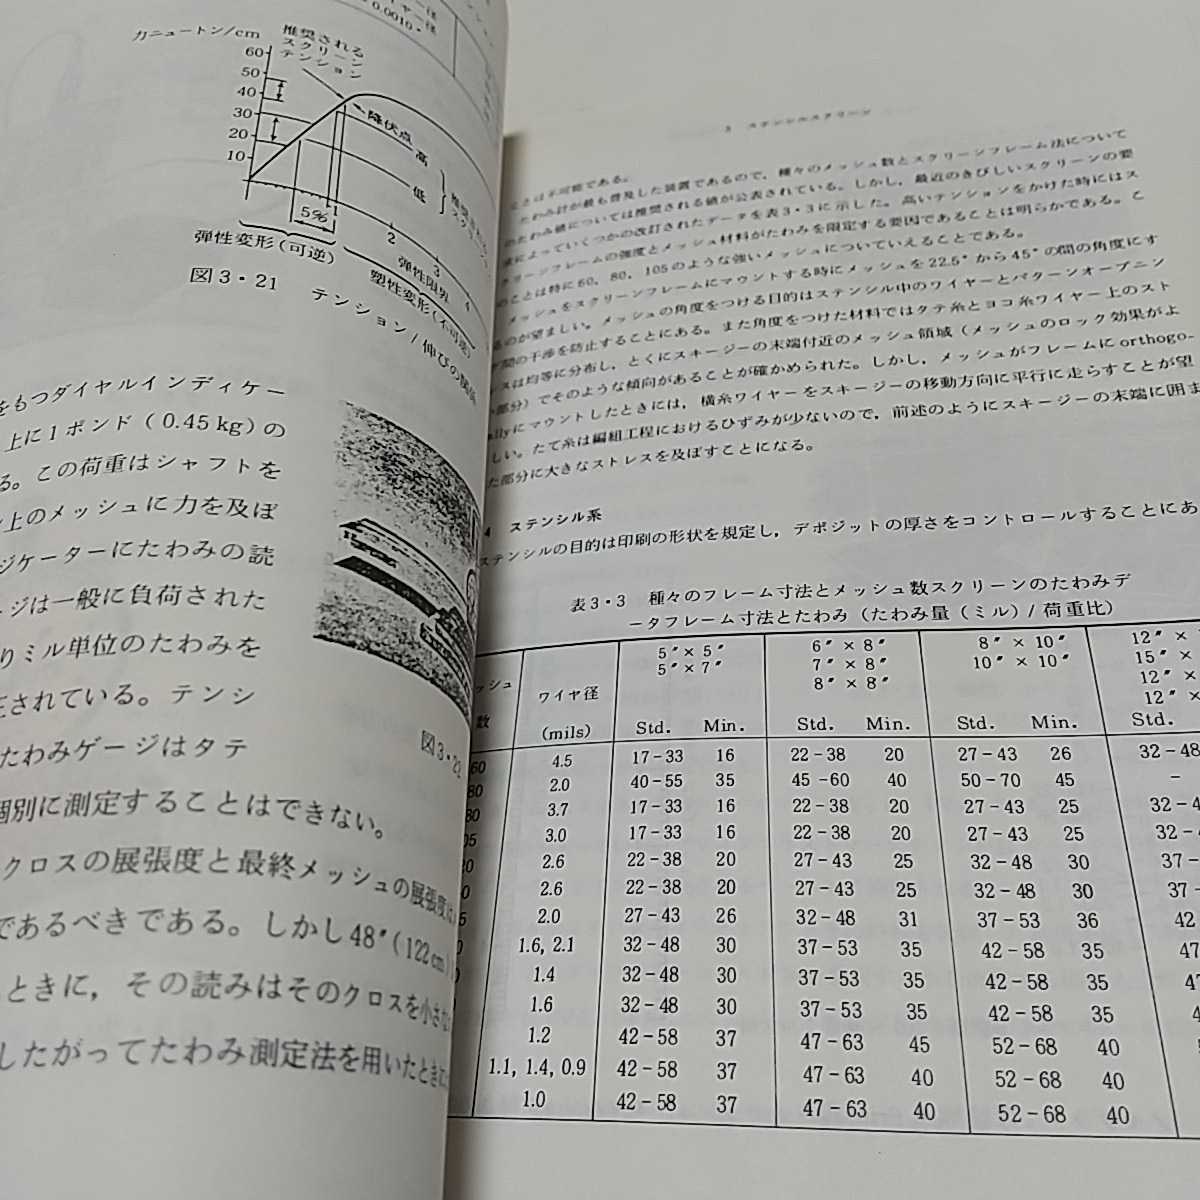 イヤー径
0.0010"
力ニュートン/cm
推奨される
スクリーン
テンション
60
50
40
30
20
10
降伏点
高
低
5%
1
2
3
4
弾性変形(可逆)
弾性限界
塑性変形(不可逆)
図3・21 テンション/伸びの
をもつダイヤルインディケー
上に1ポンド(0.45kg)の
る。この荷重はシャフトを
上のメッシュに力を及ぼ
ジケーターにたわみの読
ージは一般に負荷された
りミル単位のたわみを
正されている。テンシ
たわみゲージはタテ
個別に測定することはできない。
クロスの展張度と最終メッシュの展張度は
であるべきである。しかし48″(122cm)
ときに,その読みはそのクロスを小さな
したがってたわみ測定法を用いたときに
図3・22
3 ステンシルスクリーン
とは不可能である。
たわみ計が最も普及した装置であるので,種々のメッシュ数とスクリーンフレーム法について
のたわみ値については推奨される値が公表されている。しかし,最近のきびしいスクリーンの要
求によっていくつかの改訂されたデータを表3・3に示した。高いテンションをかけた時にはス
クリーンフレームの強度とメッシュ材料がたわみを限定する要因であることは明らかである。こ
のことは特に60,80,105のような強いメッシュについていえることである。
メッシュをスクリーンフレームにマウントする時にメッシュを22.5°から45°の間の角度にす
るのが望ましい。メッシュの角度をつける目的はステンシル中のワイヤーとパターンオープニン
グ間の干渉を防止することにある。また角度をつけた材料ではタテ糸とヨコ糸ワイヤー上のスト
レスは均等に分布し,とくにスキージーの末端付近のメッシュ領域(メッシュのロック効果がよ
い部分)でそのような傾向があることが確かめられた。しかし,メッシュがフレームにorthogo-
nallyにマウントしたときには,横糸ワイヤーをスキージーの移動方向に平行に走らすことが望
しい。たて糸は編組工程におけるひずみが少ないので,前述のようにスキージーの末端に囲ま
た部分に大きなストレスを及ぼすことになる。
4 ステンシル系
ステンシルの目的は印刷の形状を規定し,デポジットの厚さをコントロールすることにあ
表3・3 種々のフレーム寸法とメッシュ数スクリーンのたわみデ
ータフレーム寸法とたわみ(たわみ量(ミル)/荷重比)
ッシュ
数
ワイヤ径
(mils)
5″×5″
5″×7″
6″×8″
7″×8″
8″×8″
8″×10″
10″×10″
12″×
15″×
12″×
12″×
Std. Min. Std. Min. Std. Min. Std.
60 4.5 17-33 16 22-38 20 27-43 26 32-48
80 2.0 40-55 35 45-60 40 50-70 45 -
80 3.7 17-33 16 22-38 20 27-43 25 32-4
05 3.0 17-33 16 22-38 20 27-43 25 32-
20 2.6 22-38 20 27-43 25 32-48 30 37-
0 2.6 22-38 20 27-43 25 32-48 30 37-
5 2.0 27-43 26 32-48 31 37-53 36 42
0 1.6, 2.1 32-48 30 37-53 35 42-58 35 47
0 1.4 32-48 30 37-53 35 42-58 35 47
1.6 32-48 30 37-53 35 42-58 35 4
1.2 42-58 37 47-63 45 52-68 40 5
1.1, 1.4, 0.9 42-58 37 47-63 40 52-68 40
1.0 42-58 37 47-63 40 52-68 40